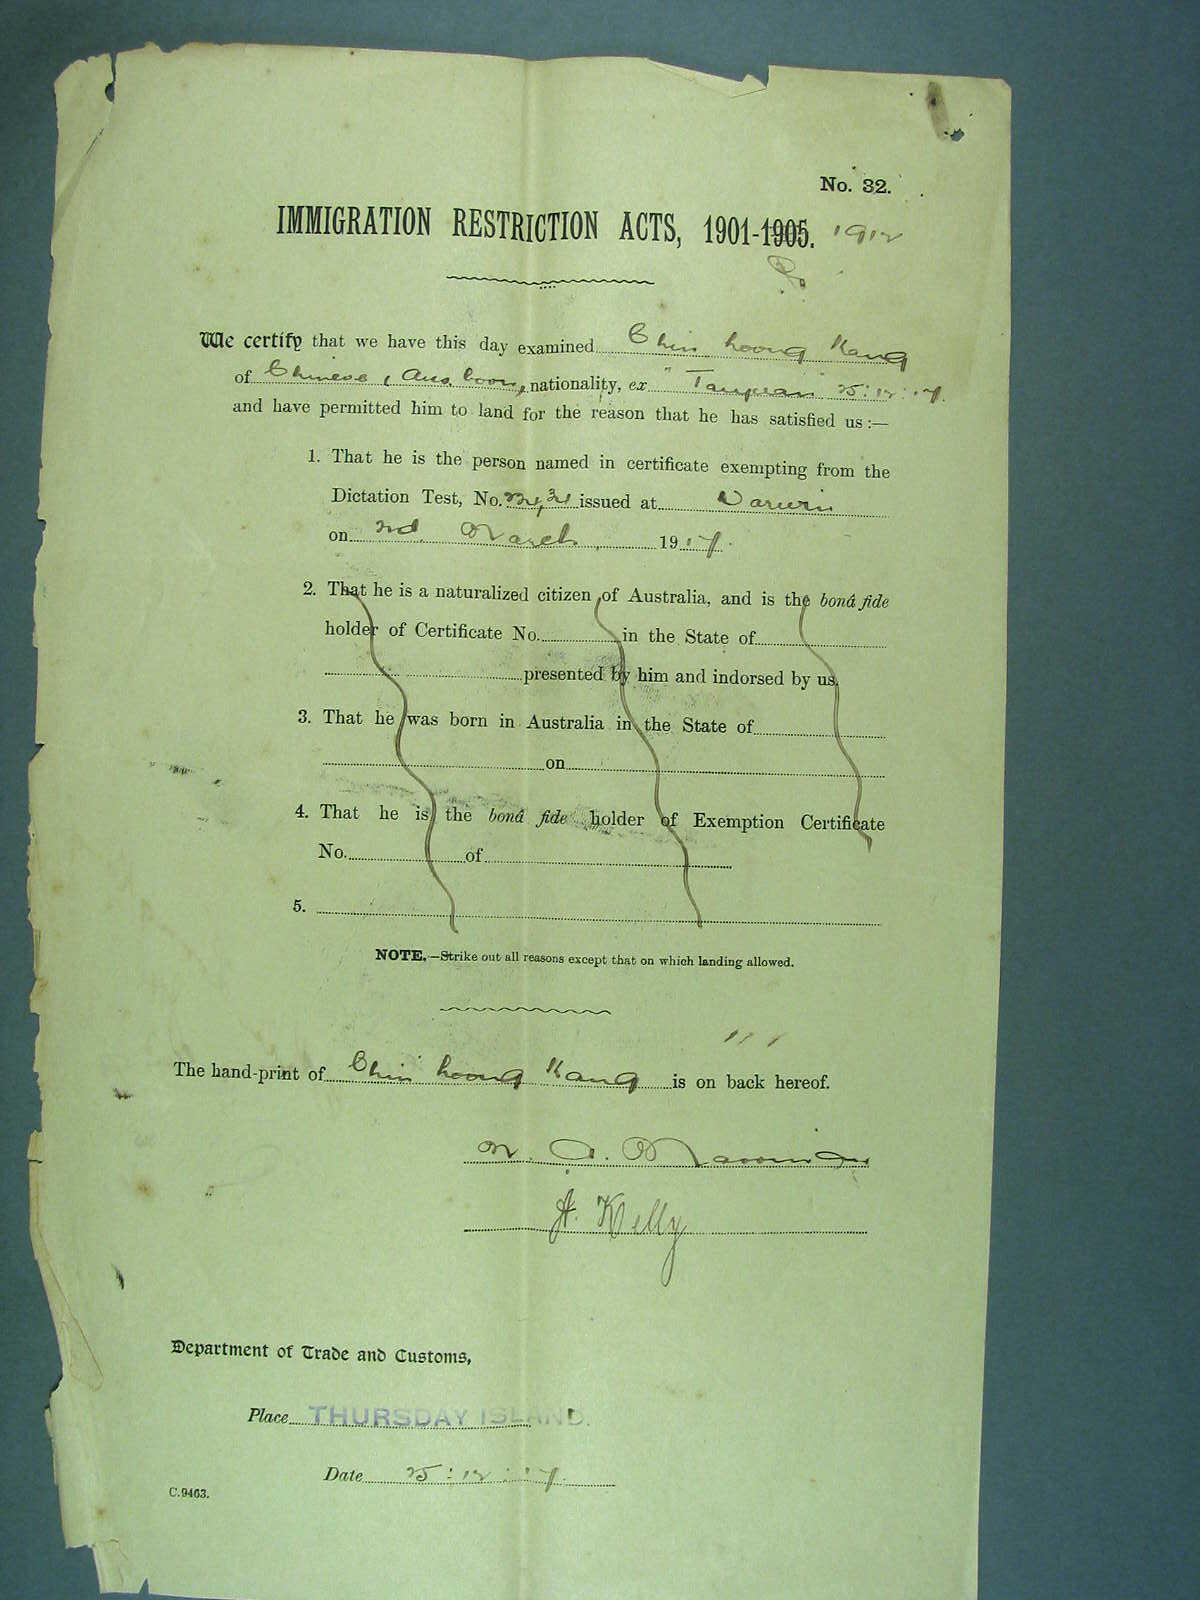 No. 32.
IMMIGRATION RESTRICTION ACTS, 1901-1905. 1912
We certify that we have this day examined Chin Loong Kang
of Chinese, Aus. born, nationality, ex "Taiyuan" 25:12:17.
and have permitted him to land for the reason that he has satisfied us :—
1. That he is the person named in certificate exempting from the
Dictation Test, No. issued at Darwin
on 2nd. March 1917.
2. That he is a naturalized citizen of Australia, and is the bonâ fide
holder of Certificate No. in the State of
presented by him and indorsed by us.
3. That he was born in Australia in the State of
on
4. That he is the bonâ fide holder of Exemption Certificate
No. of
5.
NOTE.—Strike out all reasons except that on which landing allowed.
The hand-print of Chin Loong Kang is on back hereof.
A. Kelly
Department of Trade and Customs,
Place THURSDAY ISLAND.
Date 25:12:17.
C.9463.